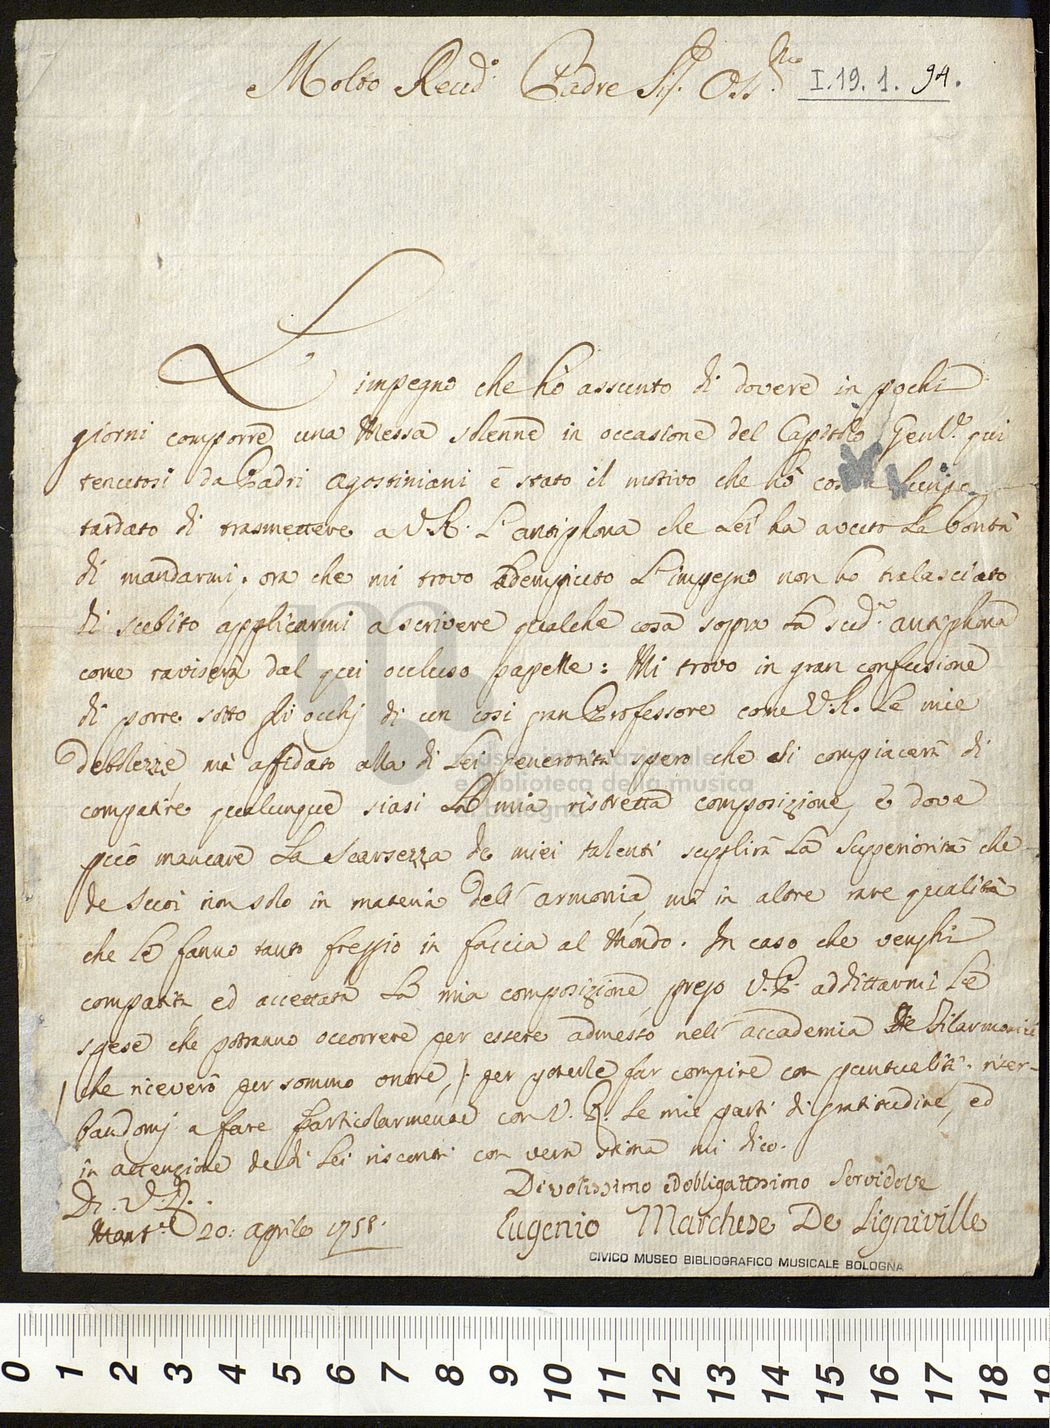 Molto Reud.o Padre Sig. Oss.mo
I.19.1. 94.
L'impegno che hò assunto di dovere in pochi
giorni comporre una Messa solenne in occasione del Capitolo Genl.e qui
tenutosi da Padri Agostiniani è stato il motivo che hò
tardato di trasmettere a V.R. L'antiphona che Lei ha avuto La bontà
di mandarmi; ora che mi trovo adempiuto L'impegno non ho tralasciato
di subito applicarmi a scrivere qualche cosa sopra La sud.a antiphona
come raviserà dal qui occluso papelle: Mi trovo in gran confusione
di porre sotto gli occhj di un così gran Professore come V.R. Le mie
debolezze mà affidato alla di Lei generosità spero che si compiacerà di
compatire qualunque siasi La mia ristretta composizione, è dove
può mancare La scarsezza de miei talenti supplirà La superiorità che
de suoi non solo in materia dell'armonia, mà in altre rare qualità
che Le fanno tanto freggio in faccia al Mondo. In caso che venghi
compatita, ed accettata La mia composizione prego V.R. addittarmi Le
spese che potranno occorrere per essere admesso nell'accademia De Filarmonici
/ che riceverò per sommo onore, / per poterle far compire con puntualità: riser-
bandomj a fare Particolarmente con V.R. Le mie parti di gratitudine, ed
in attenzione de di Lei riscontri con vera stima mi dico.
Di V.R.
Devotissimo ed obligattissimo Servidore
Mant.a 20: aprile 1758.
Eugenio Marchese De Ligniville
CIVICO MUSEO BIBLIOGRAFICO MUSICALE BOLOGNA
museo internazionale
e biblioteca della musica
di bologna
0 1 2 3 4 5 6 7 8 9 10 11 12 13 14 15 16 17 18 19